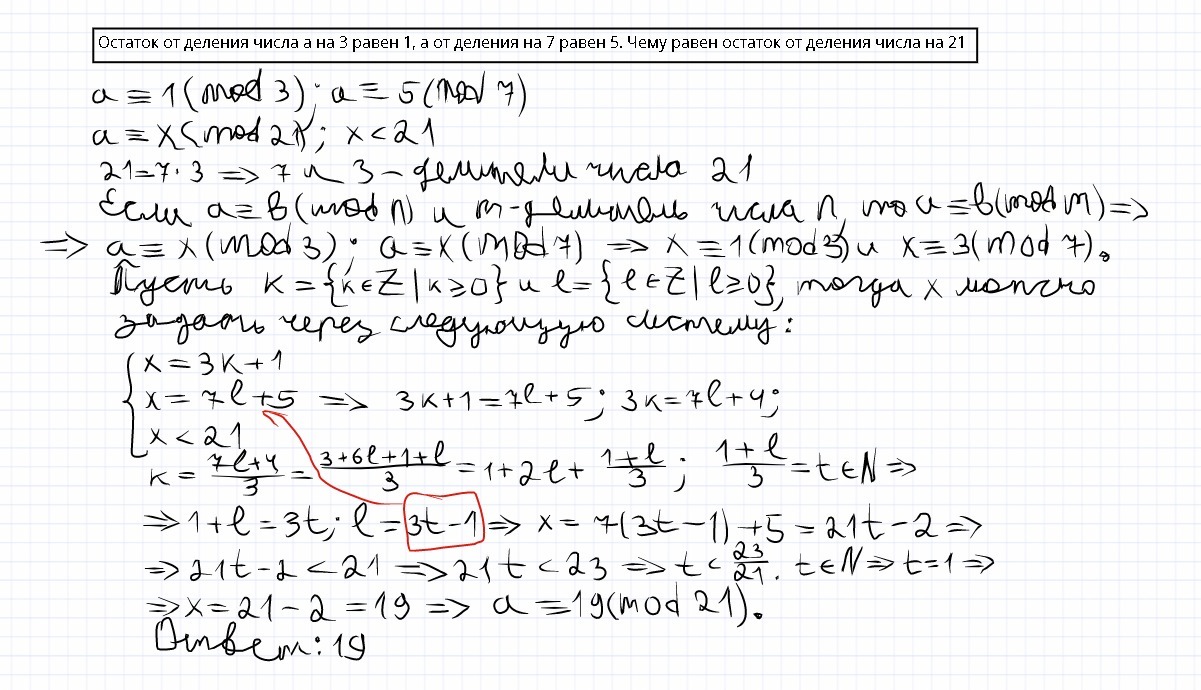 Остаток от деления числа a на 3 равен 1, а от деления на 7 равен 5. Чему равен остаток от деления числа на 21
a ≡ 1(mod 3); a ≡ 5(mod 7)
a ≡ x(mod 21); x < 21
21=7·3 => 7 и 3 - делители числа 21
Если a≡b(mod n) и m-делитель числа n, то a≡b(mod m) =>
=> a ≡ x(mod 3); a ≡ x(mod 7) => x ≡ 1(mod 3) и x ≡ 3(mod 7).
Пусть k = {k∈Z | k≥0} и l = {l∈Z | l≥0}, тогда x можно
задать через следующую систему:
{ x = 3k+1
x = 7l+5 => 3k+1=7l+5; 3k=7l+4;
x < 21
k = (7l+4)/3 = (3+6l+1+l)/3 = 1+2l+ (1+l)/3; (1+l)/3 = t∈N =>
=> 1+l = 3t; l = 3t-1 => x = 7(3t-1)+5 = 21t-2 =>
=> 21t-2 < 21 => 21t < 23 => t < 23/21. t∈N => t=1 =>
=> x = 21-2 = 19 => a ≡ 19(mod 21).
Ответ: 19